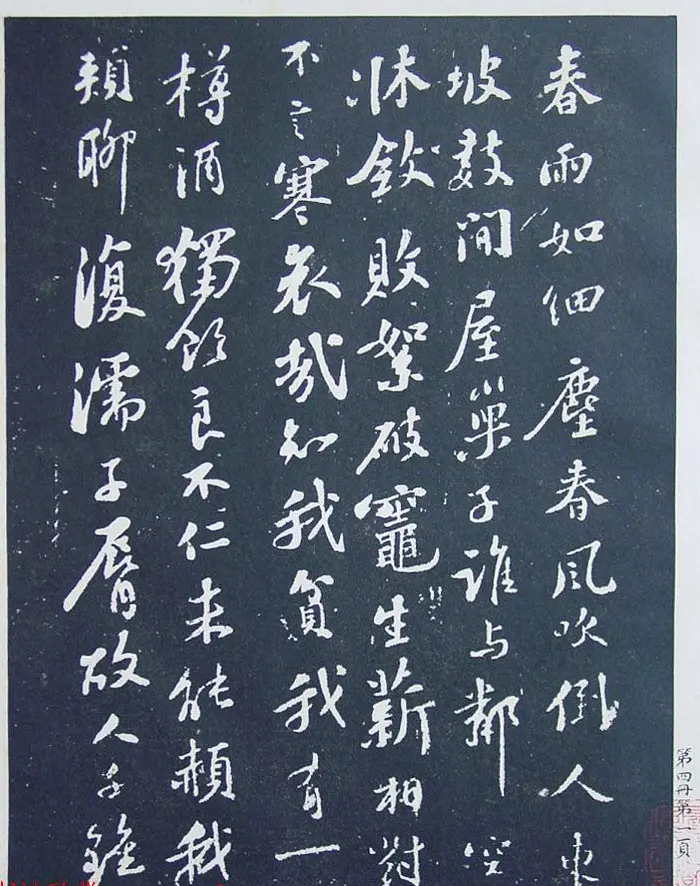 春雨如細塵春風吹倒人東
坡數間屋巢子誰与鄰空
牀斂敗絮破竈生薪相對
不言寒哀哉知我貧我有一
樽酒獨飲良不仁未能赬我
頰聊復濡子脣故人千鍾
第四冊第頁